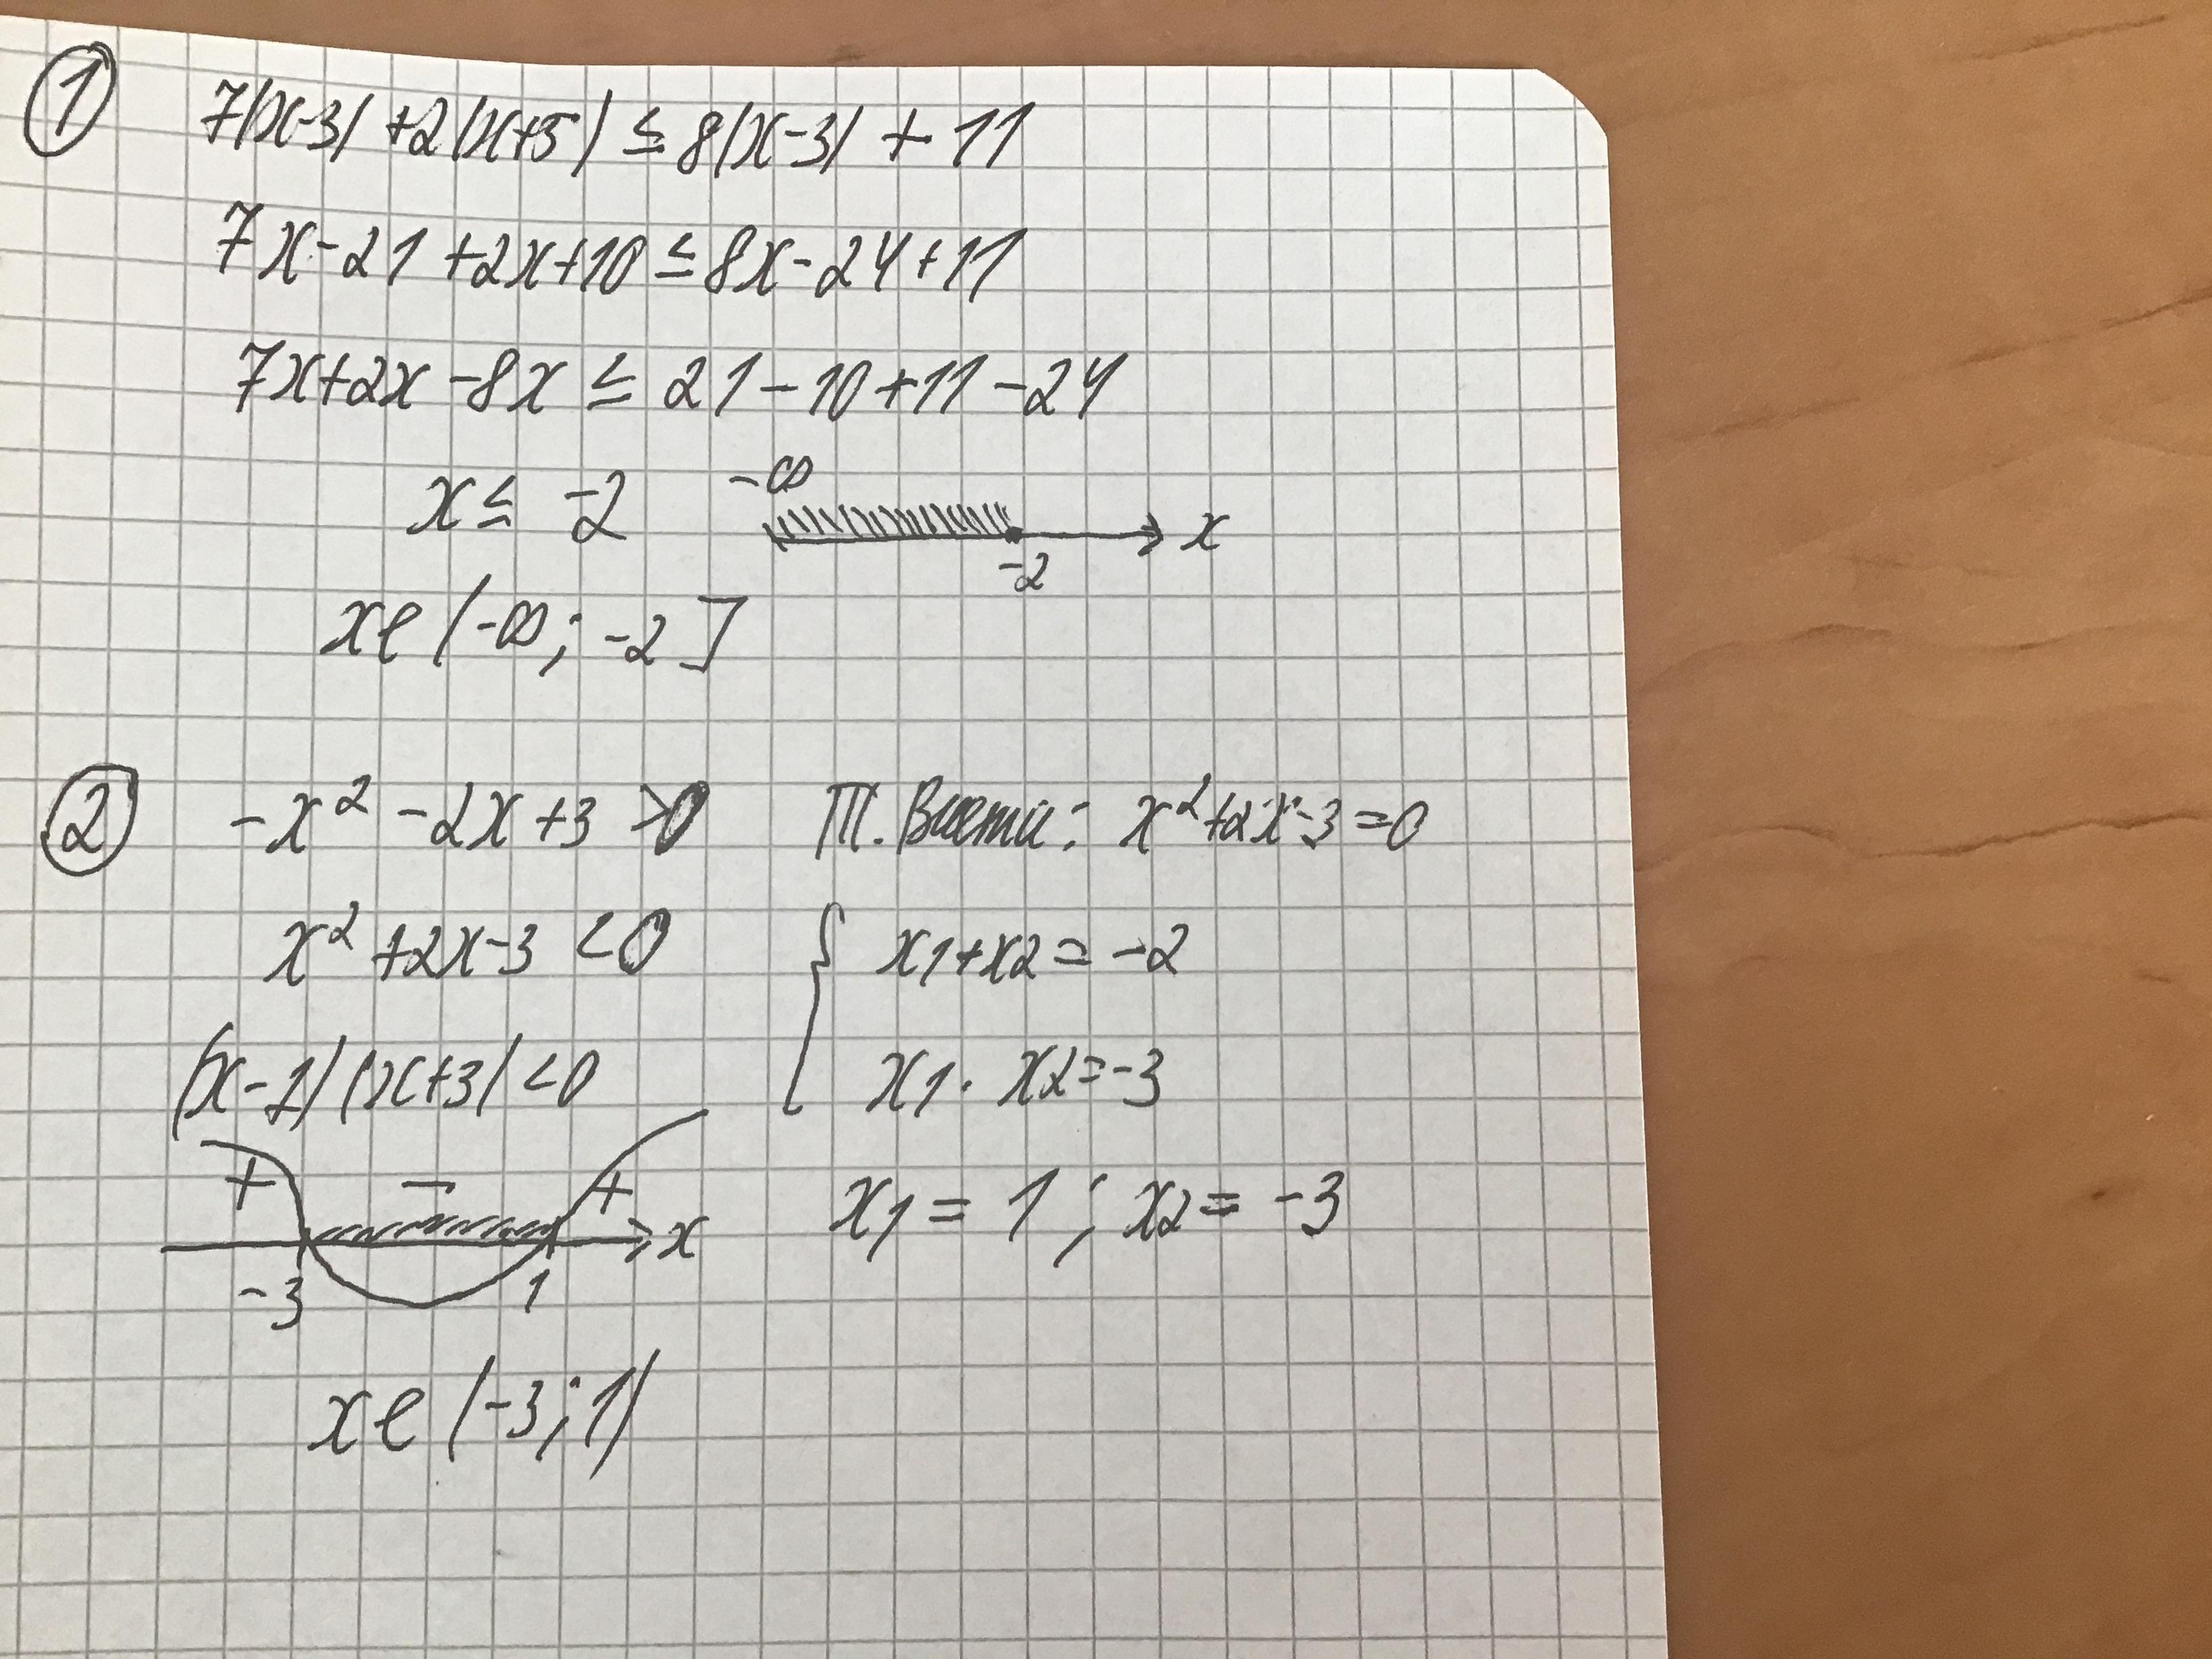 1
7(x-3)+2(x+5) ≤ 8(x-3)+11
7x-21+2x+10 ≤ 8x-24+11
7x+2x-8x ≤ 21-10+11-24
x ≤ -2
-∞
-2
x
x∈(-∞; -2]
2
-x²-2x+3 >0
x²+2x-3 <0
(x-1)(x+3)<0
+ - +
-3 1 x
x∈(-3;1)
Т. Виета: x²+2x-3=0
x1+x2=-2
x1·x2=-3
x1=1; x2=-3